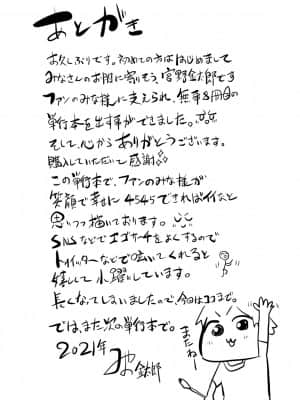 あとがき
お久しぶりです。初めての方ははじめまして
みなさんのお腹に寄りそう、宮野金太郎です
ファンのみな様に支えられ、無事8冊目の
単行本を出す事ができました。
そして、心からありがとうございます。
購入していただいて感謝
この単行本で、ファンのみな様が
笑顔で幸せに4545できればイイなと
思いつつ描いております。
SNSなどでエゴサーチをよくするので
トイッターなどで呟いてくれると
嬉しくて小躍りしています。
長くなってしまいましたので、今回はココまで。
では、また次の単行本で。
2021年
鉄郎
またねー